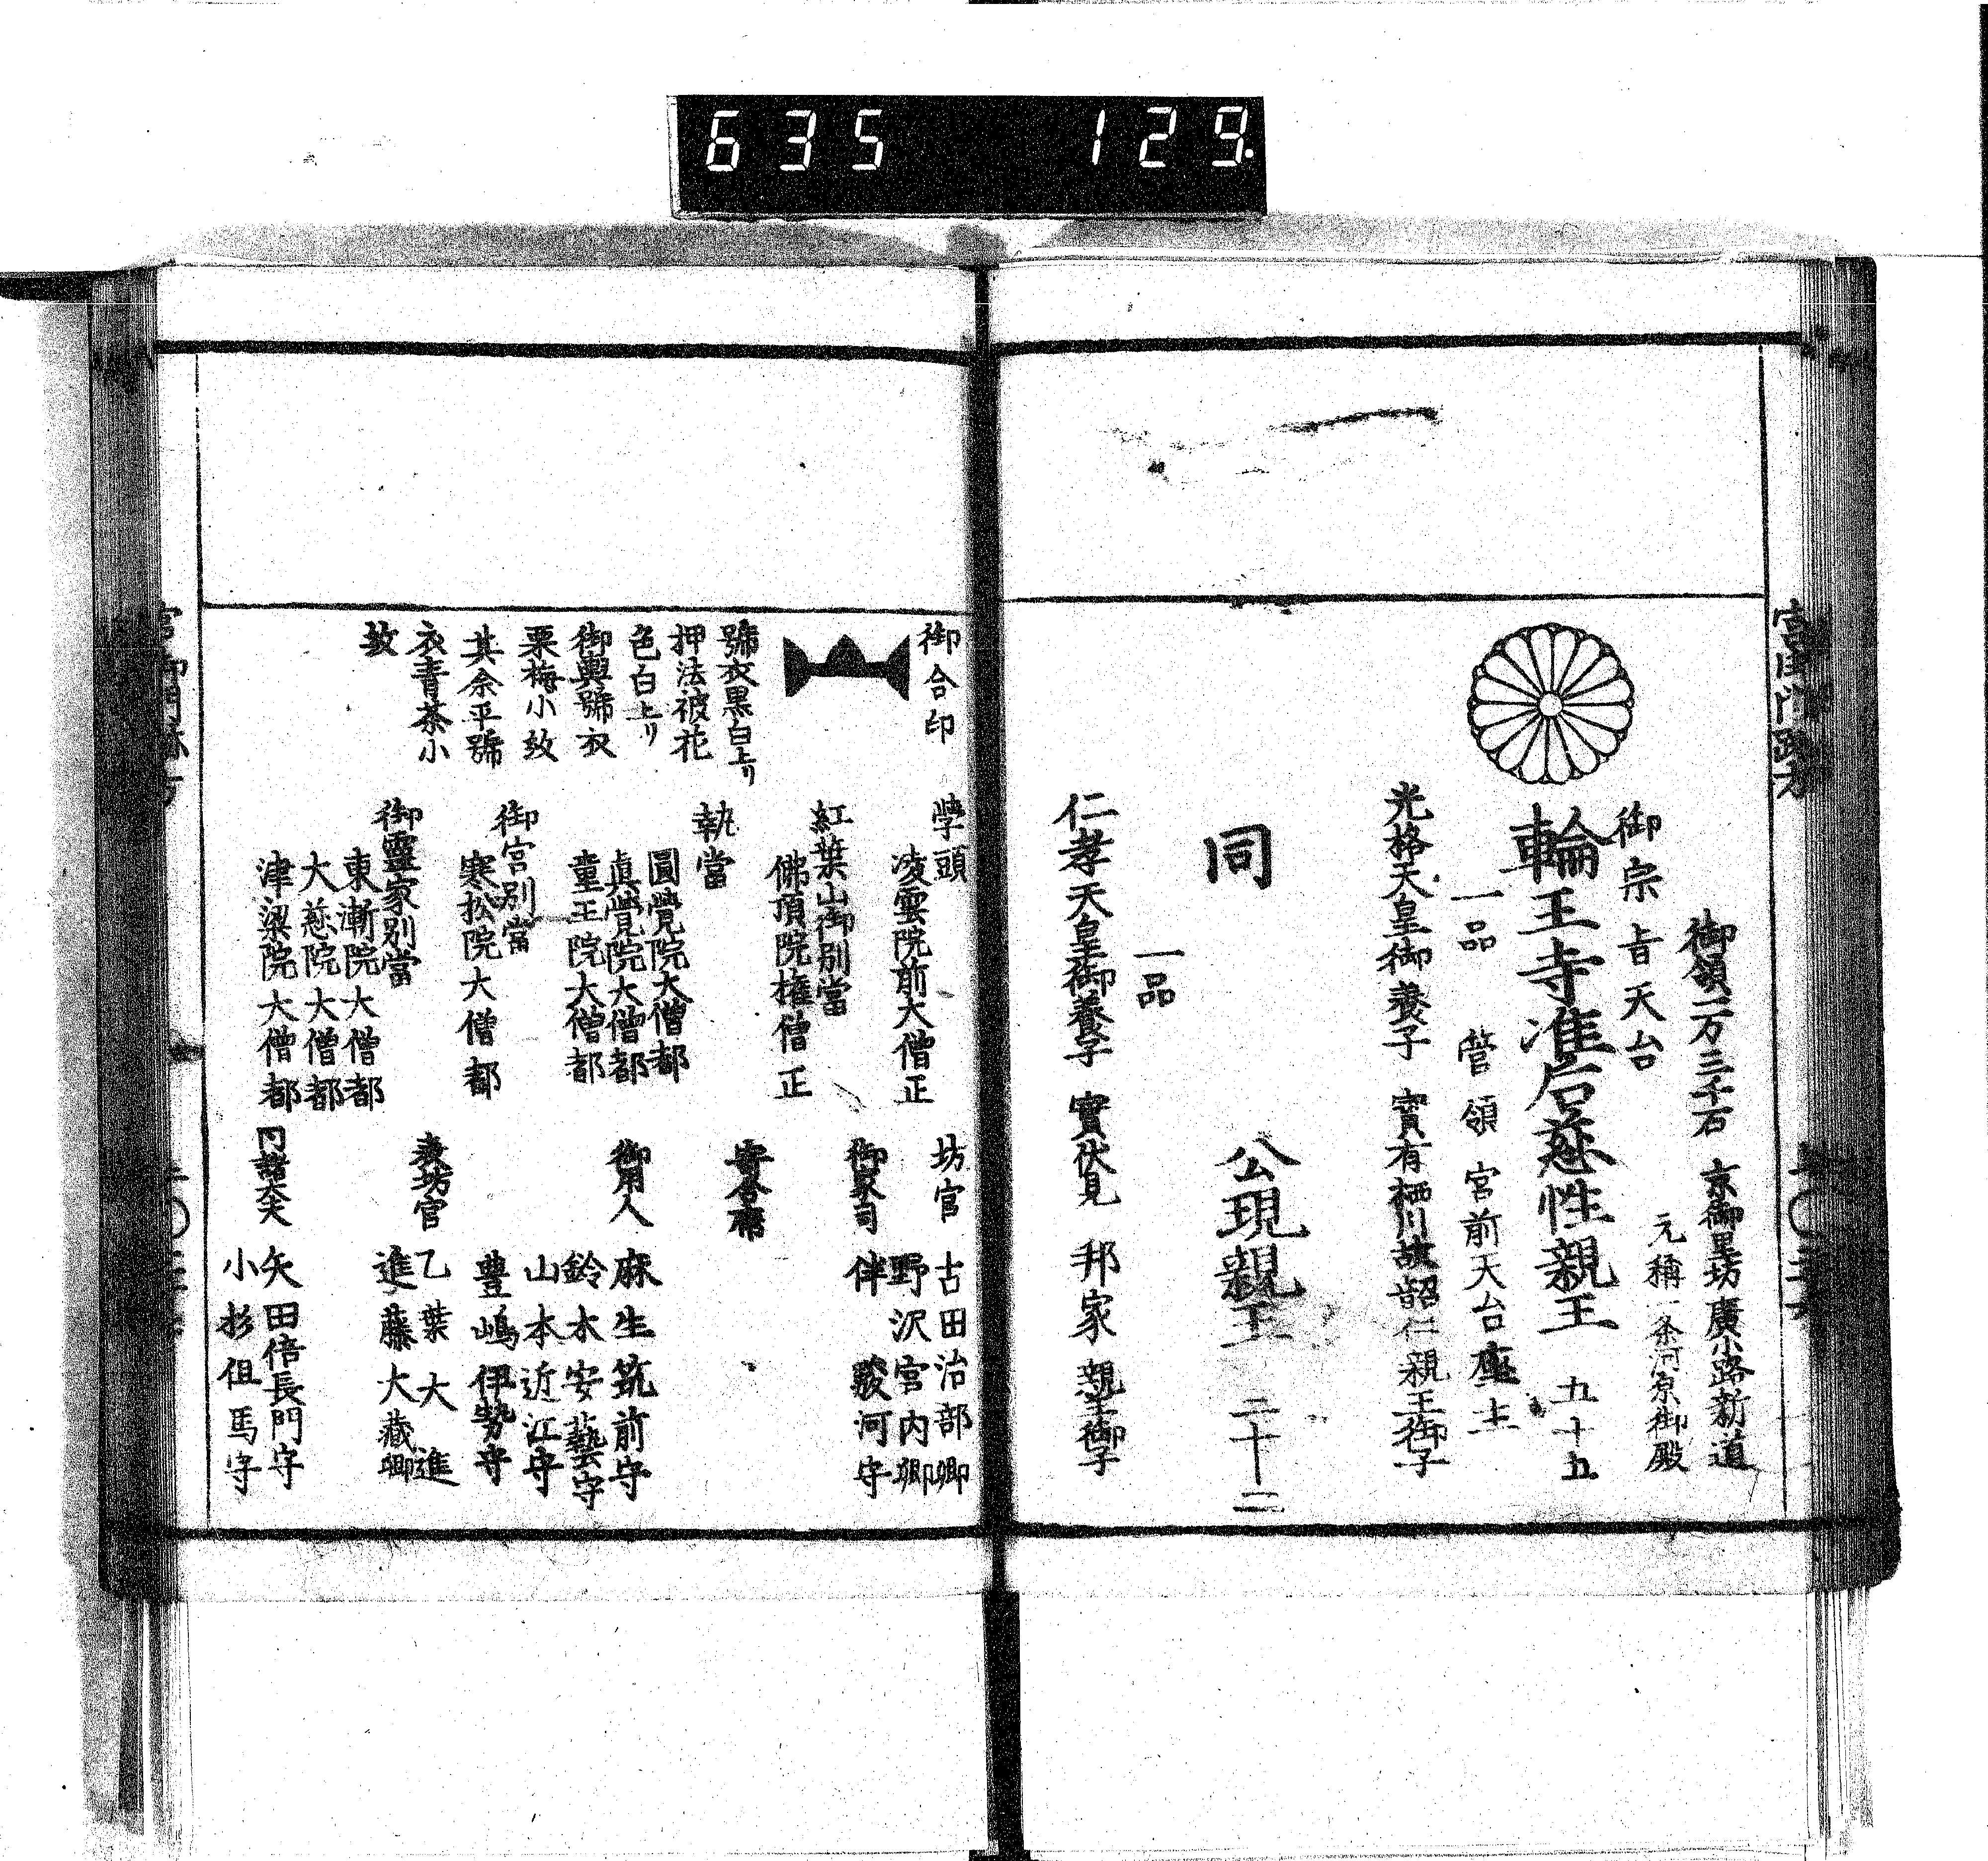 635 129.
御領一万三千石 京御里坊廣小路新道
御宗旨天台 元稱一条河原御殿
輪王寺准后慈性親王 五十五
一品 管領宮前天台座主
光格天皇御養子 實有栖川故韶仁親王御子
同 公現親王 二十二
一品
仁孝天皇御養子 實伏見 邦家親王御子
御合印
號衣黒白上リ
押法被花
色白上リ
御輿號衣
栗梅小紋
其余平號
衣青茶小
紋
學頭
凌雲院前大僧正
紅葉山御別當
佛頂院権僧正
執當
圓覺院大僧都
眞覺院大僧都
童王院大僧都
御宮別當
寒松院大僧都
御靈家別當
東漸院大僧都
大慈院大僧都
津梁院大僧都
坊官 古田治部卿
野沢宮内卿
御家司 伴 駿河守
御用人 麻生筑前守
鈴木安藝守
山本近江守
豊嶋伊勢守
表坊官 乙葉大進
進藤大藏卿
同諸大夫 矢田倍長門守
小杉但馬守